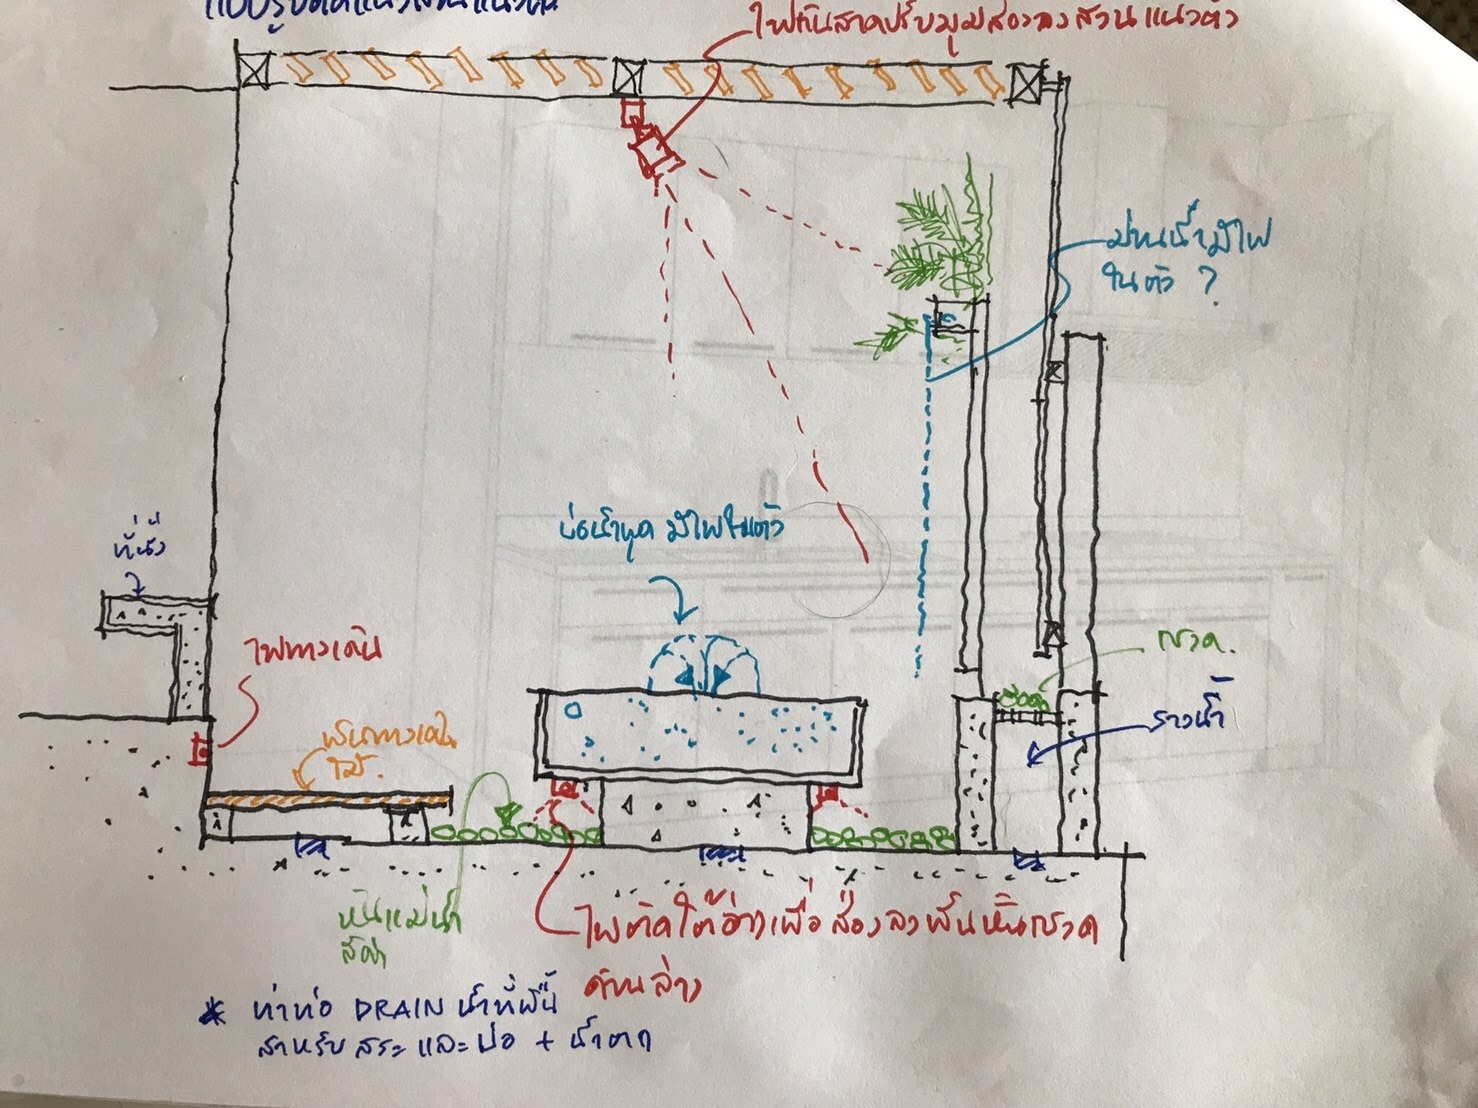 แบบรูปตัดแนวสวนแนวตั้ง
ไฟกันสาดปรับมุมส่องลงสวนแนวตั้ง
ม่านน้ำมีไฟ
ในตัว ?
บ่อน้ำพุด มีไฟในตัว
ที่นั่ง
ไฟทางเดิน
กรวด.
รางน้ำ
พื้นทางเดิน
ไม้.
หินแม่น้ำ
สีดำ
ไฟติดใต้อ่างเพื่อส่องลงพื้นหินกรวด
ด้านล่าง
* ทำท่อ DRAIN น้ำที่พื้น
สำหรับสระและบ่อ + น้ำตก